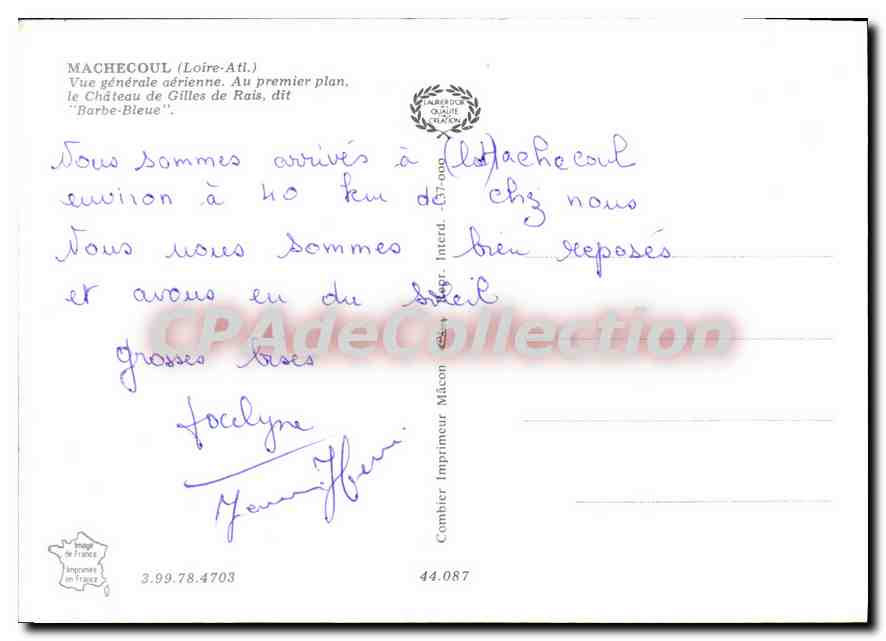 MACHECOUL (Loire-Atl.)
Vue générale aérienne. Au premier plan,
le Château de Gilles de Rais, dit
"Barbe-Bleue".
LAURIER D'OR
DE LA
QUALITÉ
CRÉATION
Nous sommes arrivés à Machecoul
environ à 40 km de chez nous
Nous nous sommes bien reposés
et avons eu du soleil
grosses bises
Jocelyne
Henri
CPAdeCollection
Combier Imprimeur Mâcon Repr. Interd. -137-000
Image
de France
Imprimée
en France
3.99.78.4703
44.087